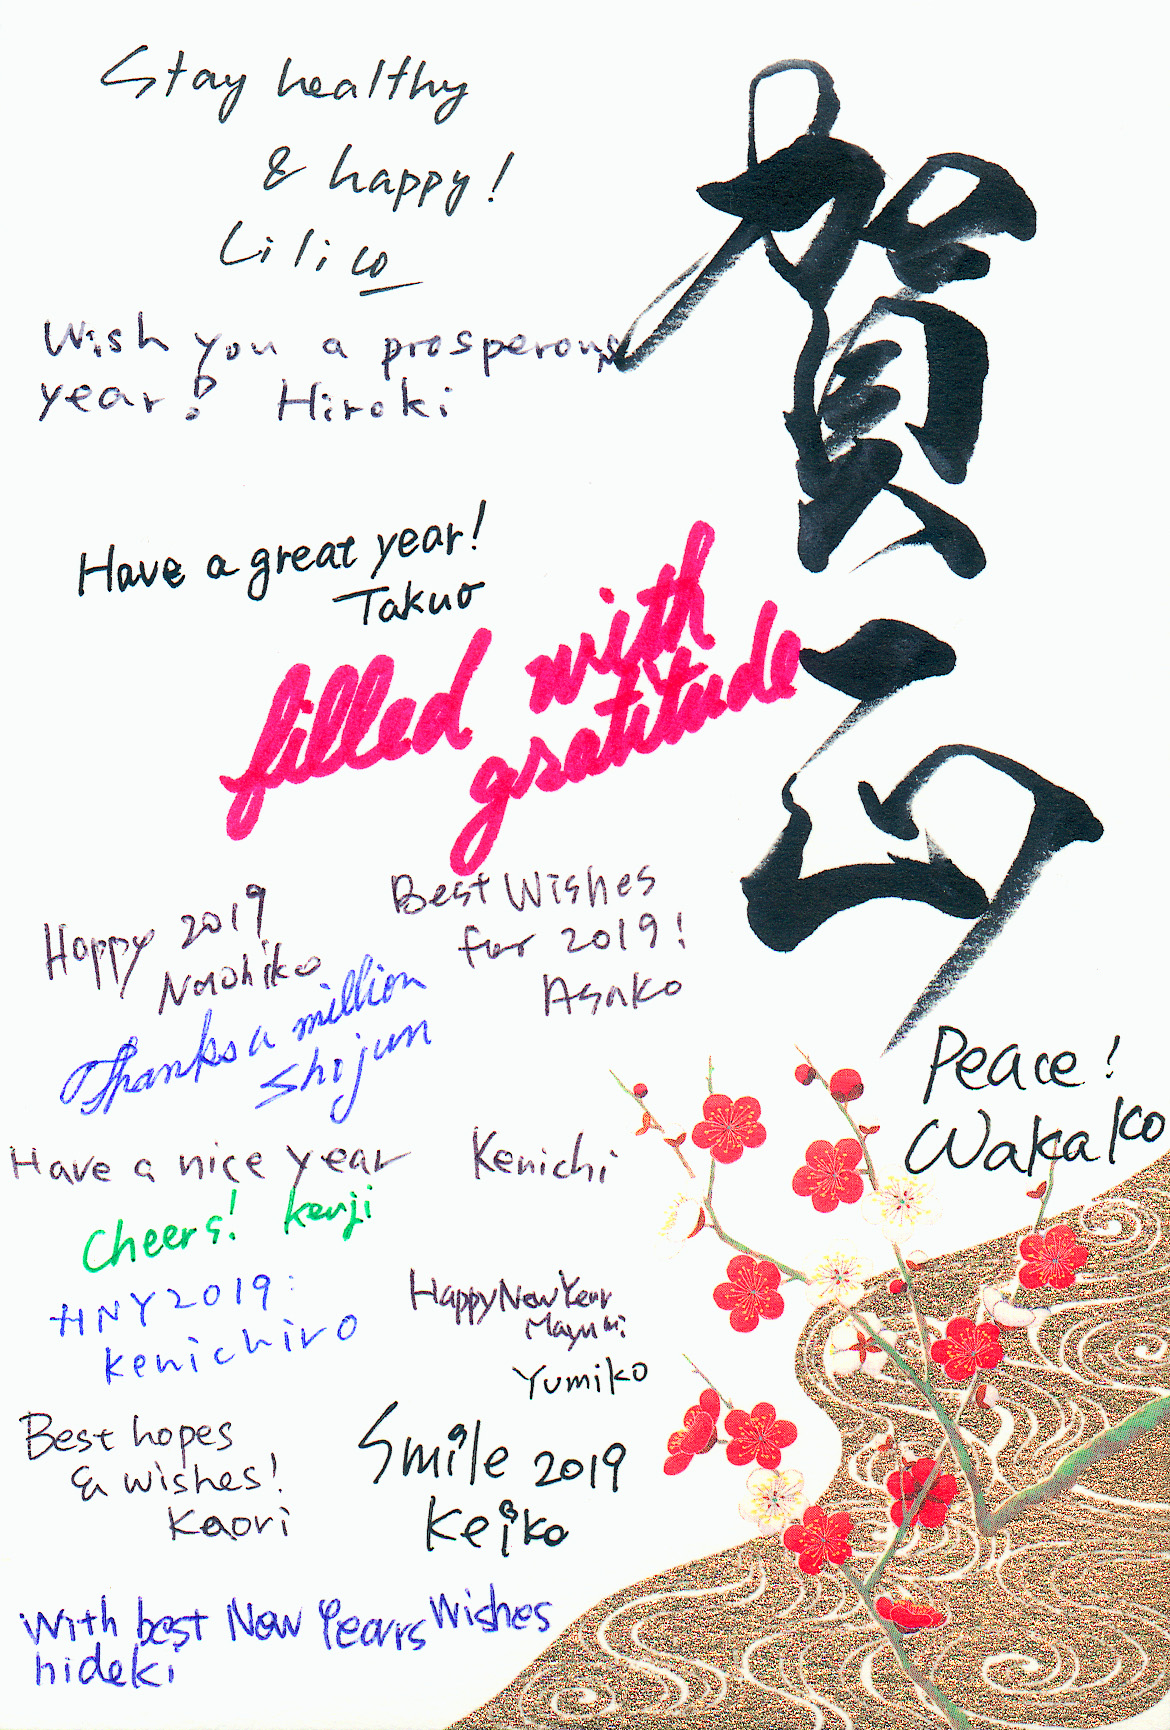 Stay healthy
& happy!
Lilico
賀正
Wish you a prosperous
year! Hiroki
Have a great year!
Takuo
filled with
gratitude
Happy 2019
Naohiko
Best Wishes
for 2019!
Asako
Thanks a million
Shijun
Peace!
Wakako
Have a nice year Kenichi
Cheers! Kenji
HNY2019:
Kenichiro
Happy New Year
Mayumi
Yumiko
Best hopes
& wishes!
Kaori
Smile 2019
Keiko
With best New Years Wishes
hideki